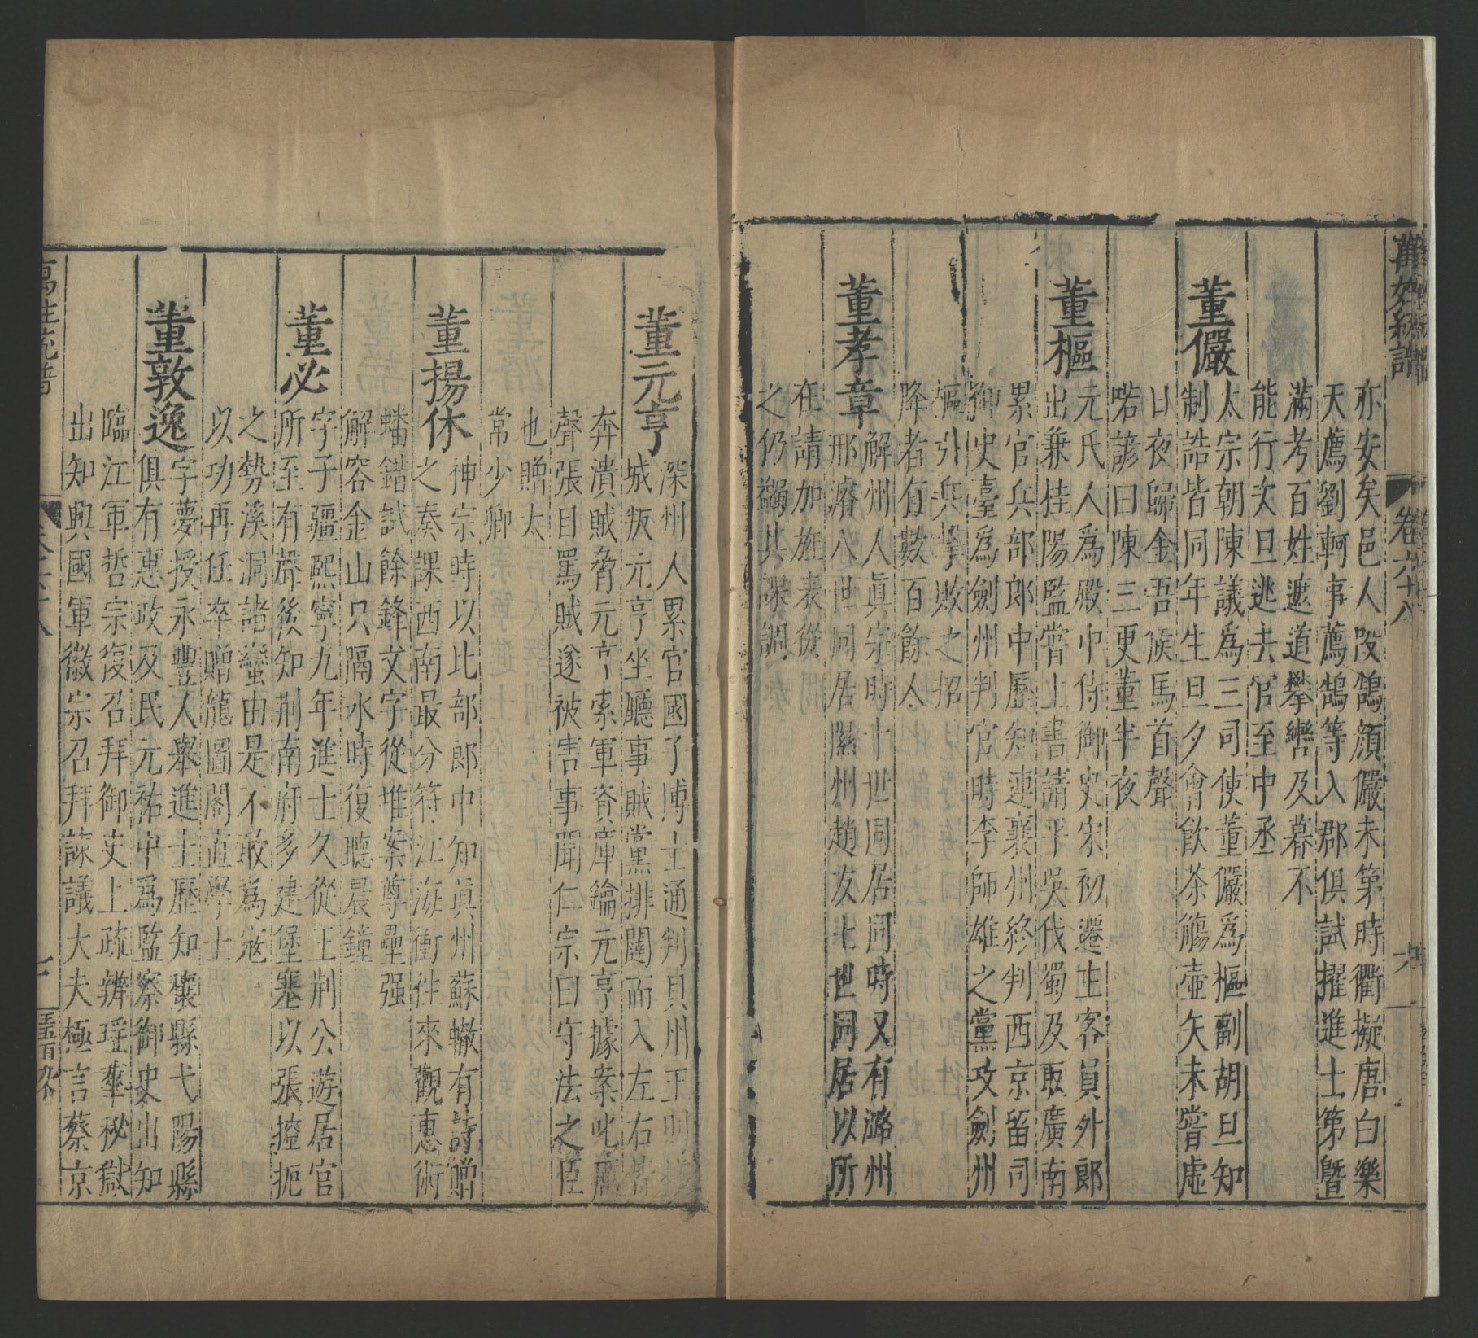 萬姓統譜
卷六十八
六
亦安矣邑人段鵠頎儼未第時衢擬唐白樂
天薦劉軻事薦鵠等入郡俱試擢進士第暨
滿考百姓遮道攀轡及暮不
能行文旦逃去官至中丞
董儼
太宗朝陳議爲三司使董儼爲樞副胡旦知
制誥皆同年生旦夕會飲茶觴壺矢未嘗虛
日夜歸金吾候馬首聲
喏諺曰陳三更董半夜
董樞
元氏人爲殿中侍御史宋初遷主客員外郎
出兼桂陽監嘗上書請平吳伐蜀及取廣南
累官兵部郎中歷知連襄州終判西京留司
御史臺爲劍州判官時李師雄之黨攻劍州
樞引兵擊敗之招
降者百數百餘人
董孝章
解州人眞宗時十世同居同時又有潞州
邢濬八世同居隰州趙友七世同居以所
在請加旌表從
之仍蠲其課調
董元亨
深州人累官國子博士通判貝州王則
城叛元亨坐廳事賊黨排闥而入左右
奔潰賊脅元亨索軍資庫鑰元亨據案叱厲
聲張目罵賊遂被害事聞仁宗曰守法之臣
也贈太
常少卿
董揚休
神宗時以比部郎中知眞州蘇轍有詩贈
之奏課西南最分符江海衝伴來觀惠術
蟠錯試餘鋒文字從堆案尊罍强
解容金山只隔水時復聽晨鐘
董必
字子疆熙寧九年進士久從王荆公遊居官
所至有聲後知荆南府多建堡塞以張控扼
之勢溪洞諸蠻由是不敢爲寇
以功再任卒贈龍圖閣直學士
董敦逸
字夢授永豐人舉進士歷知穰縣弋陽縣
俱有惠政及民元祐中爲監察御史出知
臨江軍哲宗復召拜御史上疏辨瑤華秘獄
出知興國軍徽宗召拜諫議大夫極言蔡京
萬姓統譜